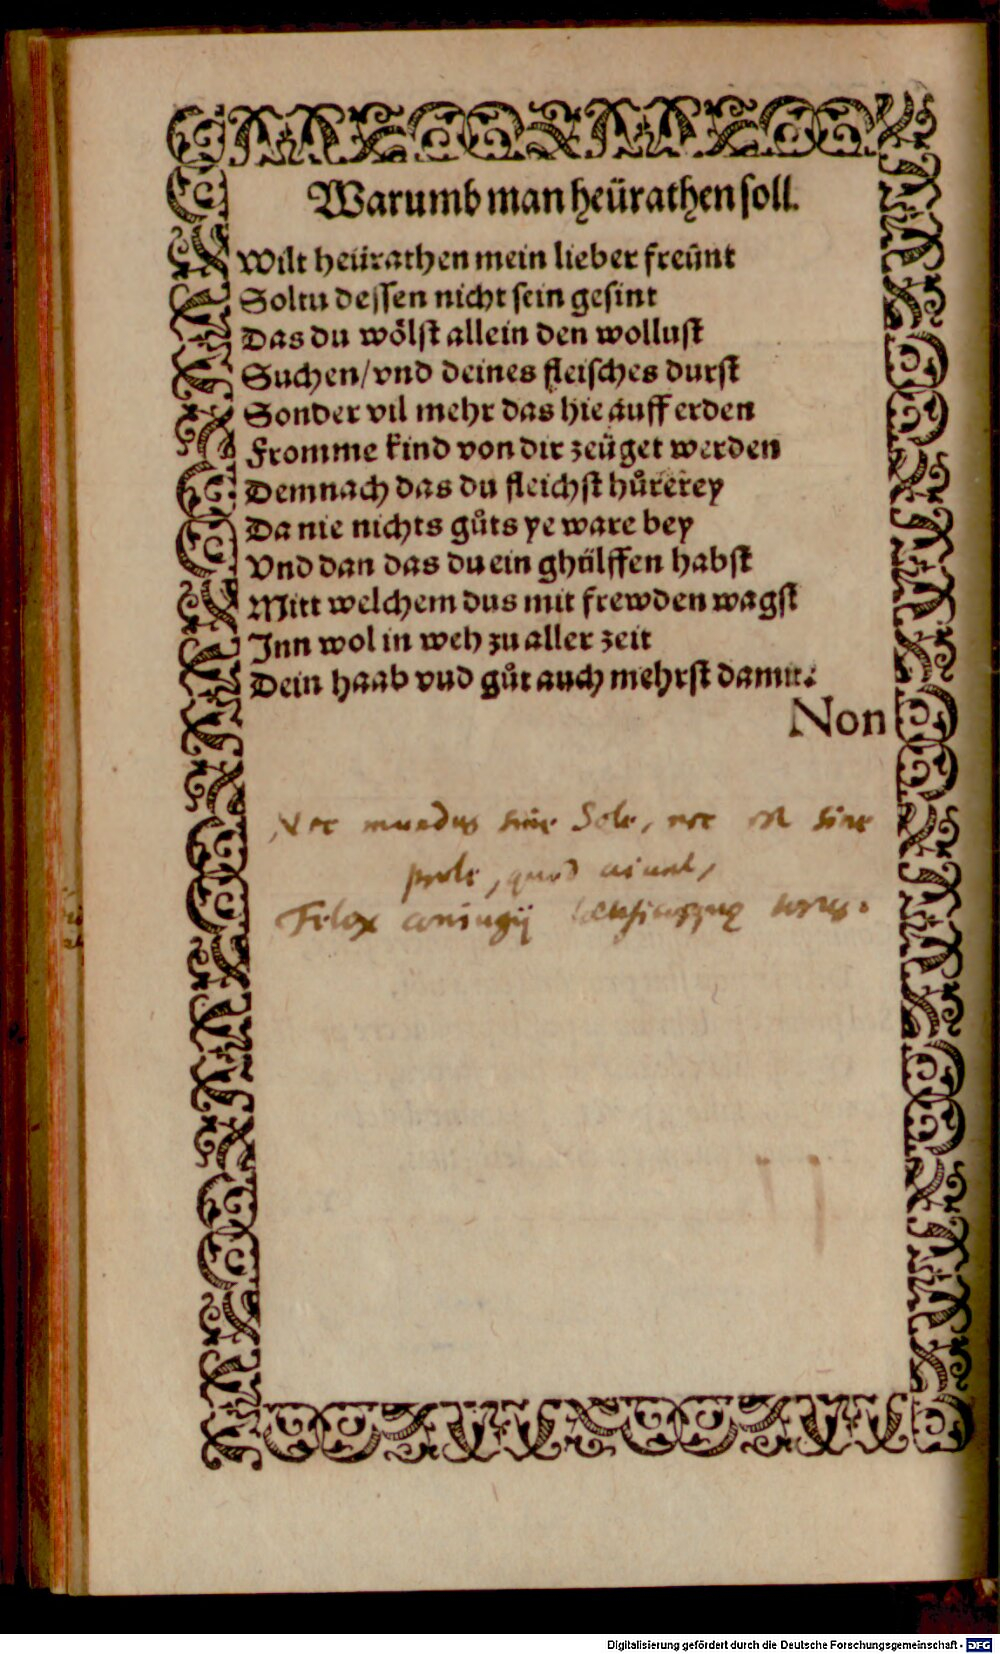 Warumb man heürathen soll.
Wilt heürathen mein lieber freünt
Soltu dessen nicht sein gesint
Das du wölst allein den wollust
Suchen/vnd deines fleisches durst
Sonder vil mehr das hie auff erden
Fromme kind von dir zeüget werden
Demnach das du fleichst hůrerey
Da nie nichts gůts ye ware bey
Vnd dan das du ein ghülffen habst
Mitt welchem dus mit frewden wagst
Inn wol in weh zu aller zeit
Dein haab vnd gůt auch mehrst damit.
Non
Nec mundus sine Sole, nec est sine
prole, quod
Felix coniugij
Digitalisierung gefördert durch die Deutsche Forschungsgemeinschaft - DFG